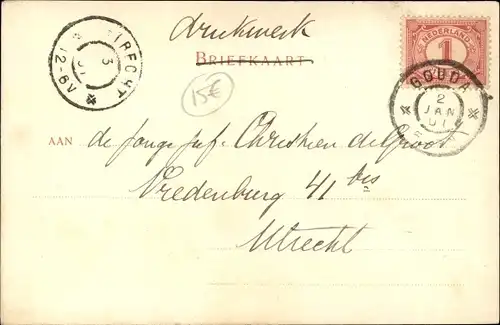 drukwerk
BRIEFKAART
UTRECHT
3
12-9V
15€
NEDERLAND
1
GOUDA
2
JAN
01
AAN de jonge juf. Christien de Groot
Vredenburg 41 bis
Utrecht